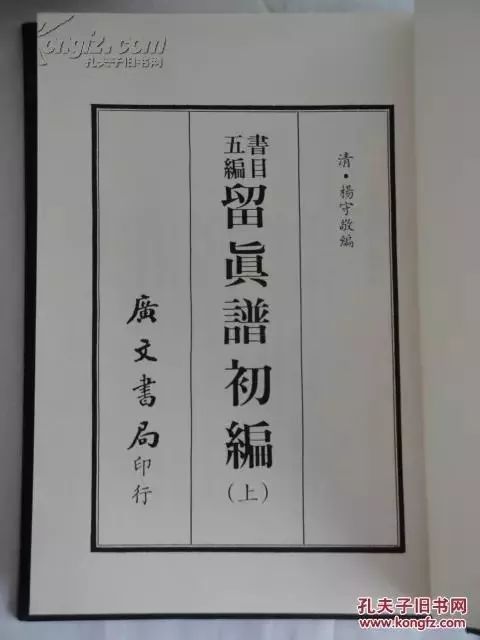 清·楊守敬編
書目五編
留眞譜初編
（上）
廣文書局印行
kongfz.com
孔夫子旧书网
孔夫子旧书网
www.kongfz.com